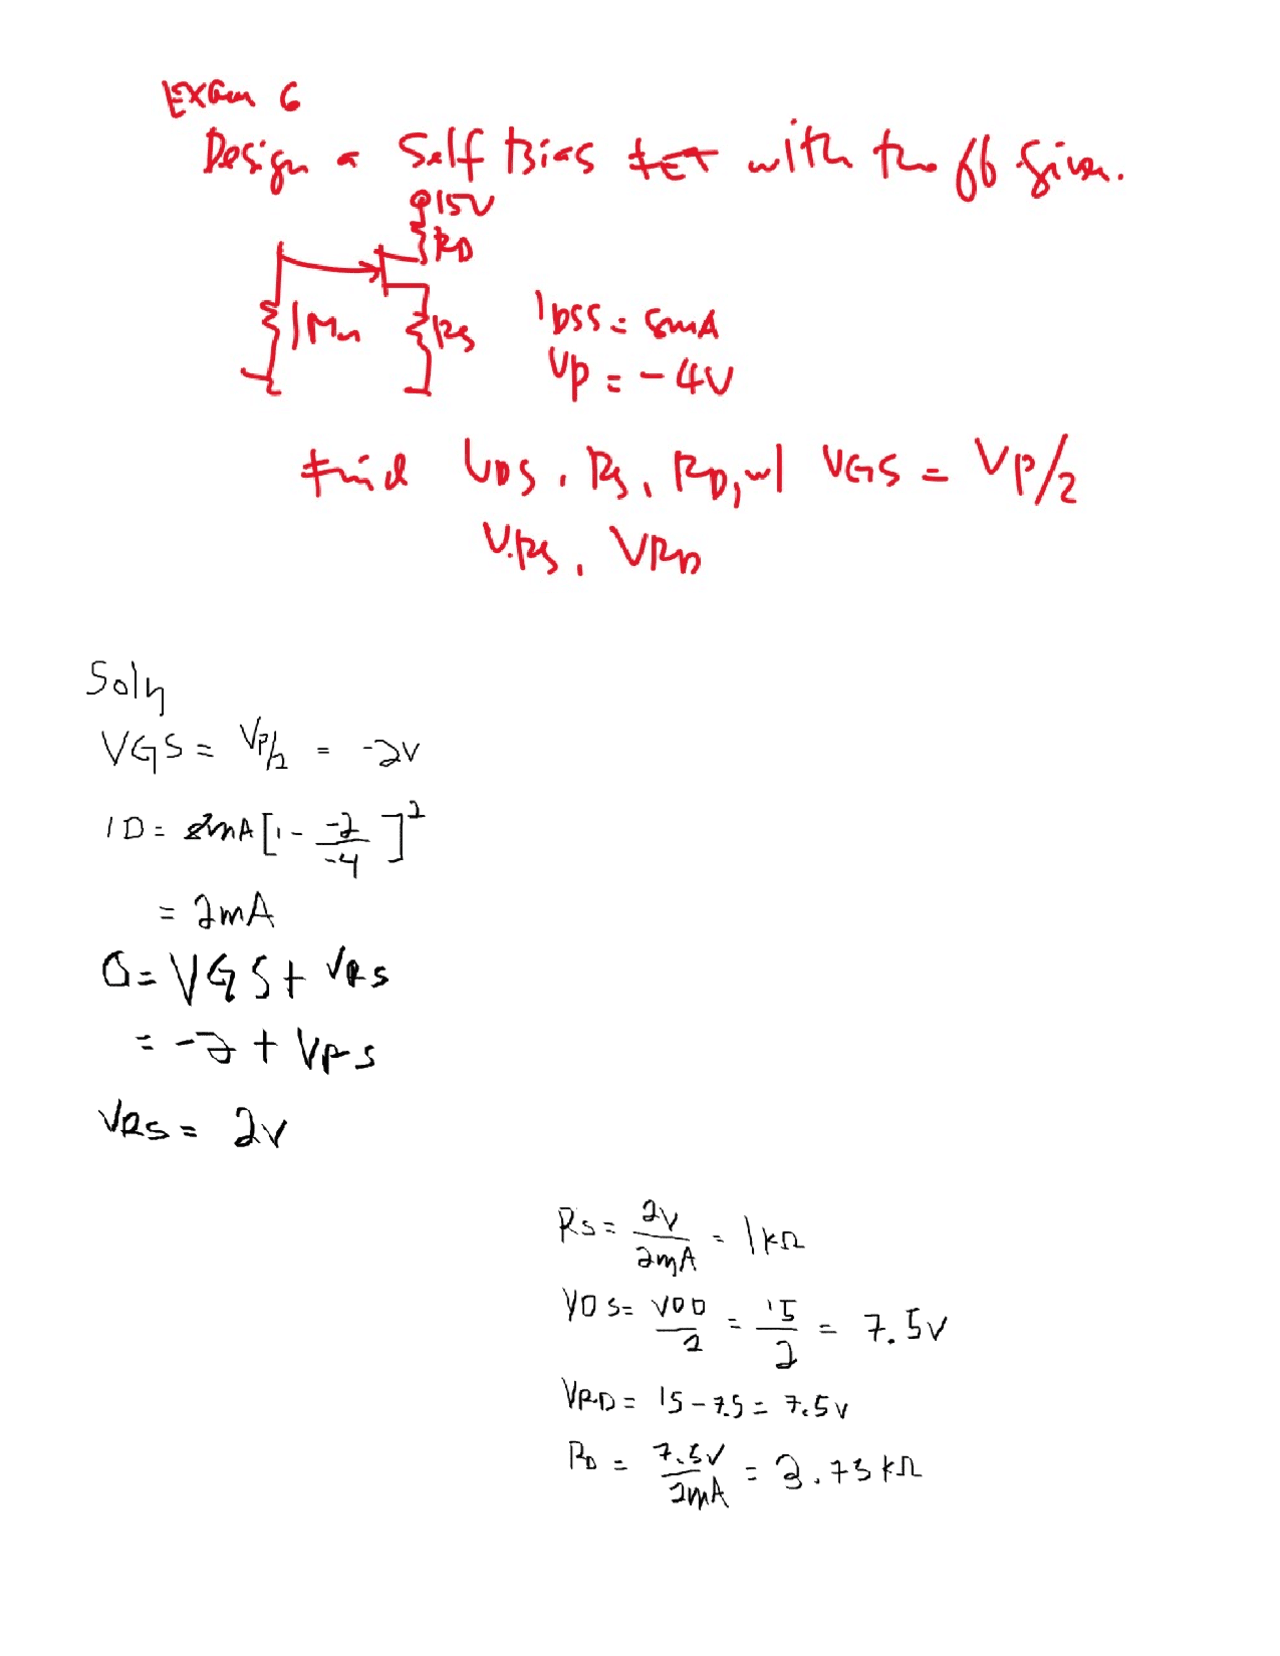 Exam 6
Design a Self Bias FET with the ff given.
15V
RD
1MΩ
RS
IDSS = 8mA
VP = -4V
Find VDS, RS, RD, w/ VGS = VP/2
VRS, VRD
Soln
VGS = VP/2 = -2V
ID = 8mA[1 - -2/-4]²
= 2mA
0 = VGS + VRS
= -2 + VRS
VRS = 2V
RS = 2V/2mA = 1kΩ
VDS = VDD/2 = 15/2 = 7.5V
VRD = 15 - 7.5 = 7.5V
RD = 7.5V/2mA = 3.75kΩ